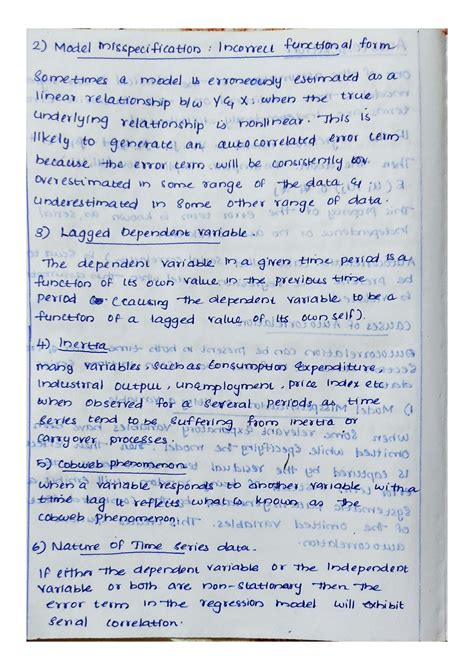 2) Model misspecification : Incorrect functional form
Sometimes a model is erroneously estimated as a
linear relationship b/w Y & X. when the true
underlying relationship is nonlinear. This is
likely to generate an autocorrelated error term
because the error term will be consistently
overestimated in some range of the data &
underestimated in some other range of data.
3) Lagged Dependent variable.
The dependent variable in a given time period is a
function of its own value in the previous time
period (causing the dependent variable to be a
function of a lagged value of its own self).
4) Inertia
many variables such as consumption Expenditure,
Industrial output, unemployment, price index etc
when observed for a several periods as time
series tend to be suffering from inertia or
carryover processes.
5) cobweb phenomenon
when a variable responds to another variable with a
time lag it reflects what is known as the
cobweb phenomenon.
6) Nature of Time series data.
If either the dependent variable or the independent
variable or both are non-stationary then the
error term in the regression model will exhibit
serial correlation.